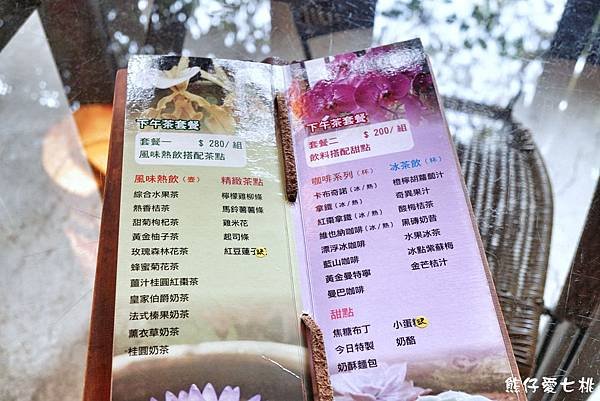 下午茶套餐
套餐一 $ 280/ 組
風味熱飲搭配茶點
風味熱飲（壺）
綜合水果茶
熱香桔茶
甜菊枸杞茶
黃金柚子茶
玫瑰森林花茶
蜂蜜菊花茶
薑汁桂圓紅棗茶
皇家伯爵奶茶
法式榛果奶茶
薰衣草奶茶
桂圓奶茶
精緻茶點
檸檬雞柳條
馬鈴薯薯條
雞米花
起司條
紅豆蓮子 缺
下午茶套餐
套餐二 $ 200/ 組
飲料搭配甜點
咖啡系列（杯）
卡布奇諾（冰/熱）
拿鐵（冰/熱）
紅棗拿鐵（冰/熱）
維也納咖啡（冰/熱）
漂浮冰咖啡
藍山咖啡
黃金曼特寧
曼巴咖啡
冰茶飲（杯）
橙檸胡蘿蔔汁
奇異果汁
酸梅桔茶
黑磚奶昔
水果冰茶
冰點紫蘇梅
金芒桔汁
甜點
焦糖布丁
今日特製
奶酥麵包
小蛋糕 缺
奶酪
熊仔愛七桃